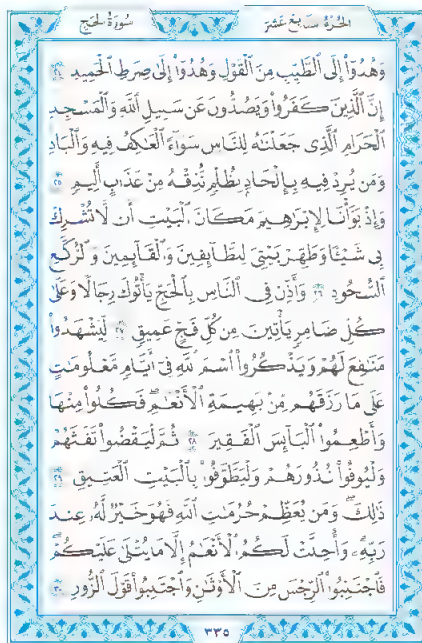 سُورَةُ الحَجِّ
الجُزءُ سَابِعَ عَشَرَ
وَهُدُوٓاْ إِلَى ٱلطَّيِّبِ مِنَ ٱلۡقَوۡلِ وَهُدُوٓاْ إِلَىٰ صِرَٰطِ ٱلۡحَمِيدِ ٢٤
إِنَّ ٱلَّذِينَ كَفَرُواْ وَيَصُدُّونَ عَن سَبِيلِ ٱللَّهِ وَٱلۡمَسۡجِدِ
ٱلۡحَرَامِ ٱلَّذِي جَعَلۡنَٰهُ لِلنَّاسِ سَوَآءً ٱلۡعَٰكِفُ فِيهِ وَٱلۡبَادِ
وَمَن يُرِدۡ فِيهِ بِإِلۡحَادِۭ بِظُلۡمٖ نُّذِقۡهُ مِنۡ عَذَابٍ أَلِيمٖ ٢٥
وَإِذۡ بَوَّأۡنَا لِإِبۡرَٰهِيمَ مَكَانَ ٱلۡبَيۡتِ أَن لَّا تُشۡرِكۡ
بِي شَيۡـٔٗا وَطَهِّرۡ بَيۡتِيَ لِلطَّآئِفِينَ وَٱلۡقَآئِمِينَ وَٱلرُّكَّعِ
ٱلسُّجُودِ ٢٦ وَأَذِّن فِي ٱلنَّاسِ بِٱلۡحَجِّ يَأۡتُوكَ رِجَالٗا وَعَلَىٰ
كُلِّ ضَامِرٖ يَأۡتِينَ مِن كُلِّ فَجٍّ عَمِيقٖ ٢٧ لِّيَشۡهَدُواْ
مَنَٰفِعَ لَهُمۡ وَيَذۡكُرُواْ ٱسۡمَ ٱللَّهِ فِيٓ أَيَّامٖ مَّعۡلُومَٰتٍ
عَلَىٰ مَا رَزَقَهُم مِّنۢ بَهِيمَةِ ٱلۡأَنۡعَٰمِۖ فَكُلُواْ مِنۡهَا
وَأَطۡعِمُواْ ٱلۡبَآئِسَ ٱلۡفَقِيرَ ٢٨ ثُمَّ لۡيَقۡضُواْ تَفَثَهُمۡ
وَلۡيُوفُواْ نُذُورَهُمۡ وَلۡيَطَّوَّفُواْ بِٱلۡبَيۡتِ ٱلۡعَتِيقِ ٢٩
ذَٰلِكَۖ وَمَن يُعَظِّمۡ حُرُمَٰتِ ٱللَّهِ فَهُوَ خَيۡرٞ لَّهُۥ عِندَ
رَبِّهِۦۗ وَأُحِلَّتۡ لَكُمُ ٱلۡأَنۡعَٰمُ إِلَّا مَا يُتۡلَىٰ عَلَيۡكُمۡۖ
فَٱجۡتَنِبُواْ ٱلرِّجۡسَ مِنَ ٱلۡأَوۡثَٰنِ وَٱجۡتَنِبُواْ قَوۡلَ ٱلزُّورِ ٣٠
٣٣٥